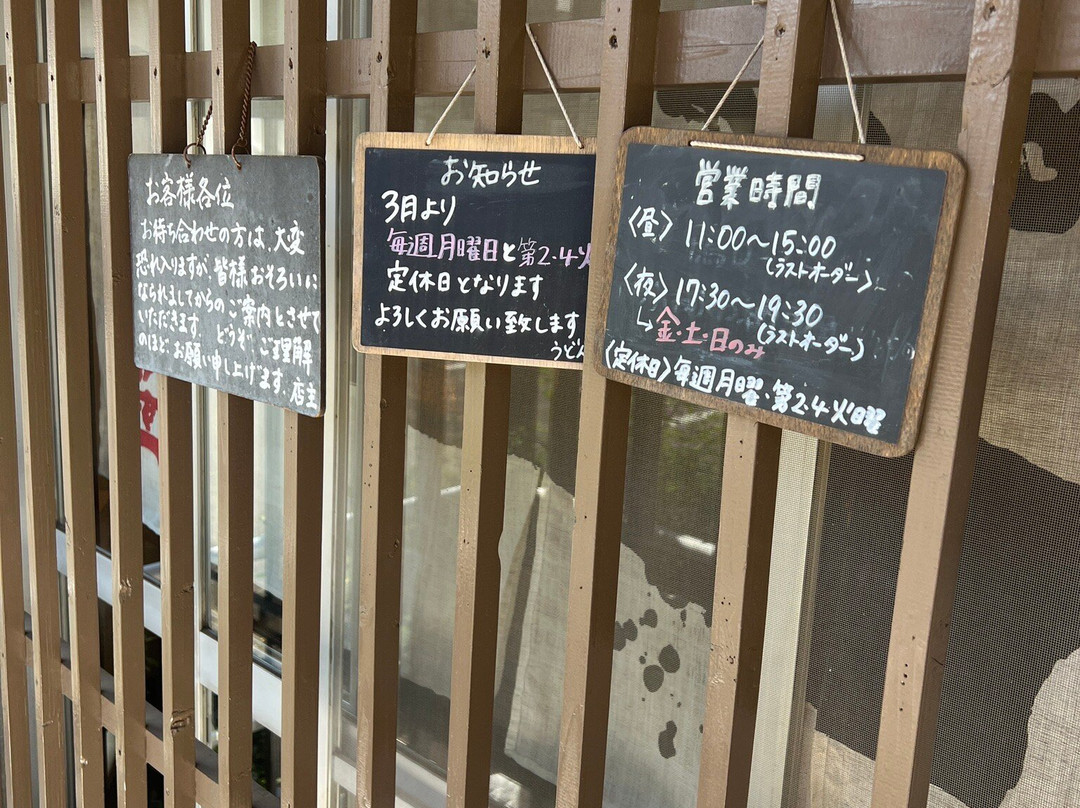 お客様各位
お待ち合わせの方は、大変
恐れ入りますが 皆様おそろいに
なられましてからのご案内とさせて
いただきます。どうぞ ご理解
のほど、お願い申し上げます。店主
お知らせ
3月より
毎週月曜日と第2・4火
定休日となります
よろしくお願い致します
うどん
営業時間
〈昼〉 11:00〜15:00
(ラストオーダー)
〈夜〉 17:30〜19:30
↳金・土・日のみ (ラストオーダー)
(定休日) 毎週月曜・第2・4火曜